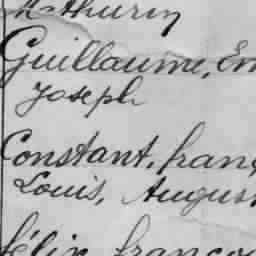 Mathurin
Guillaume, Em
Joseph
Constant, fran
Louis, August
félix françoi